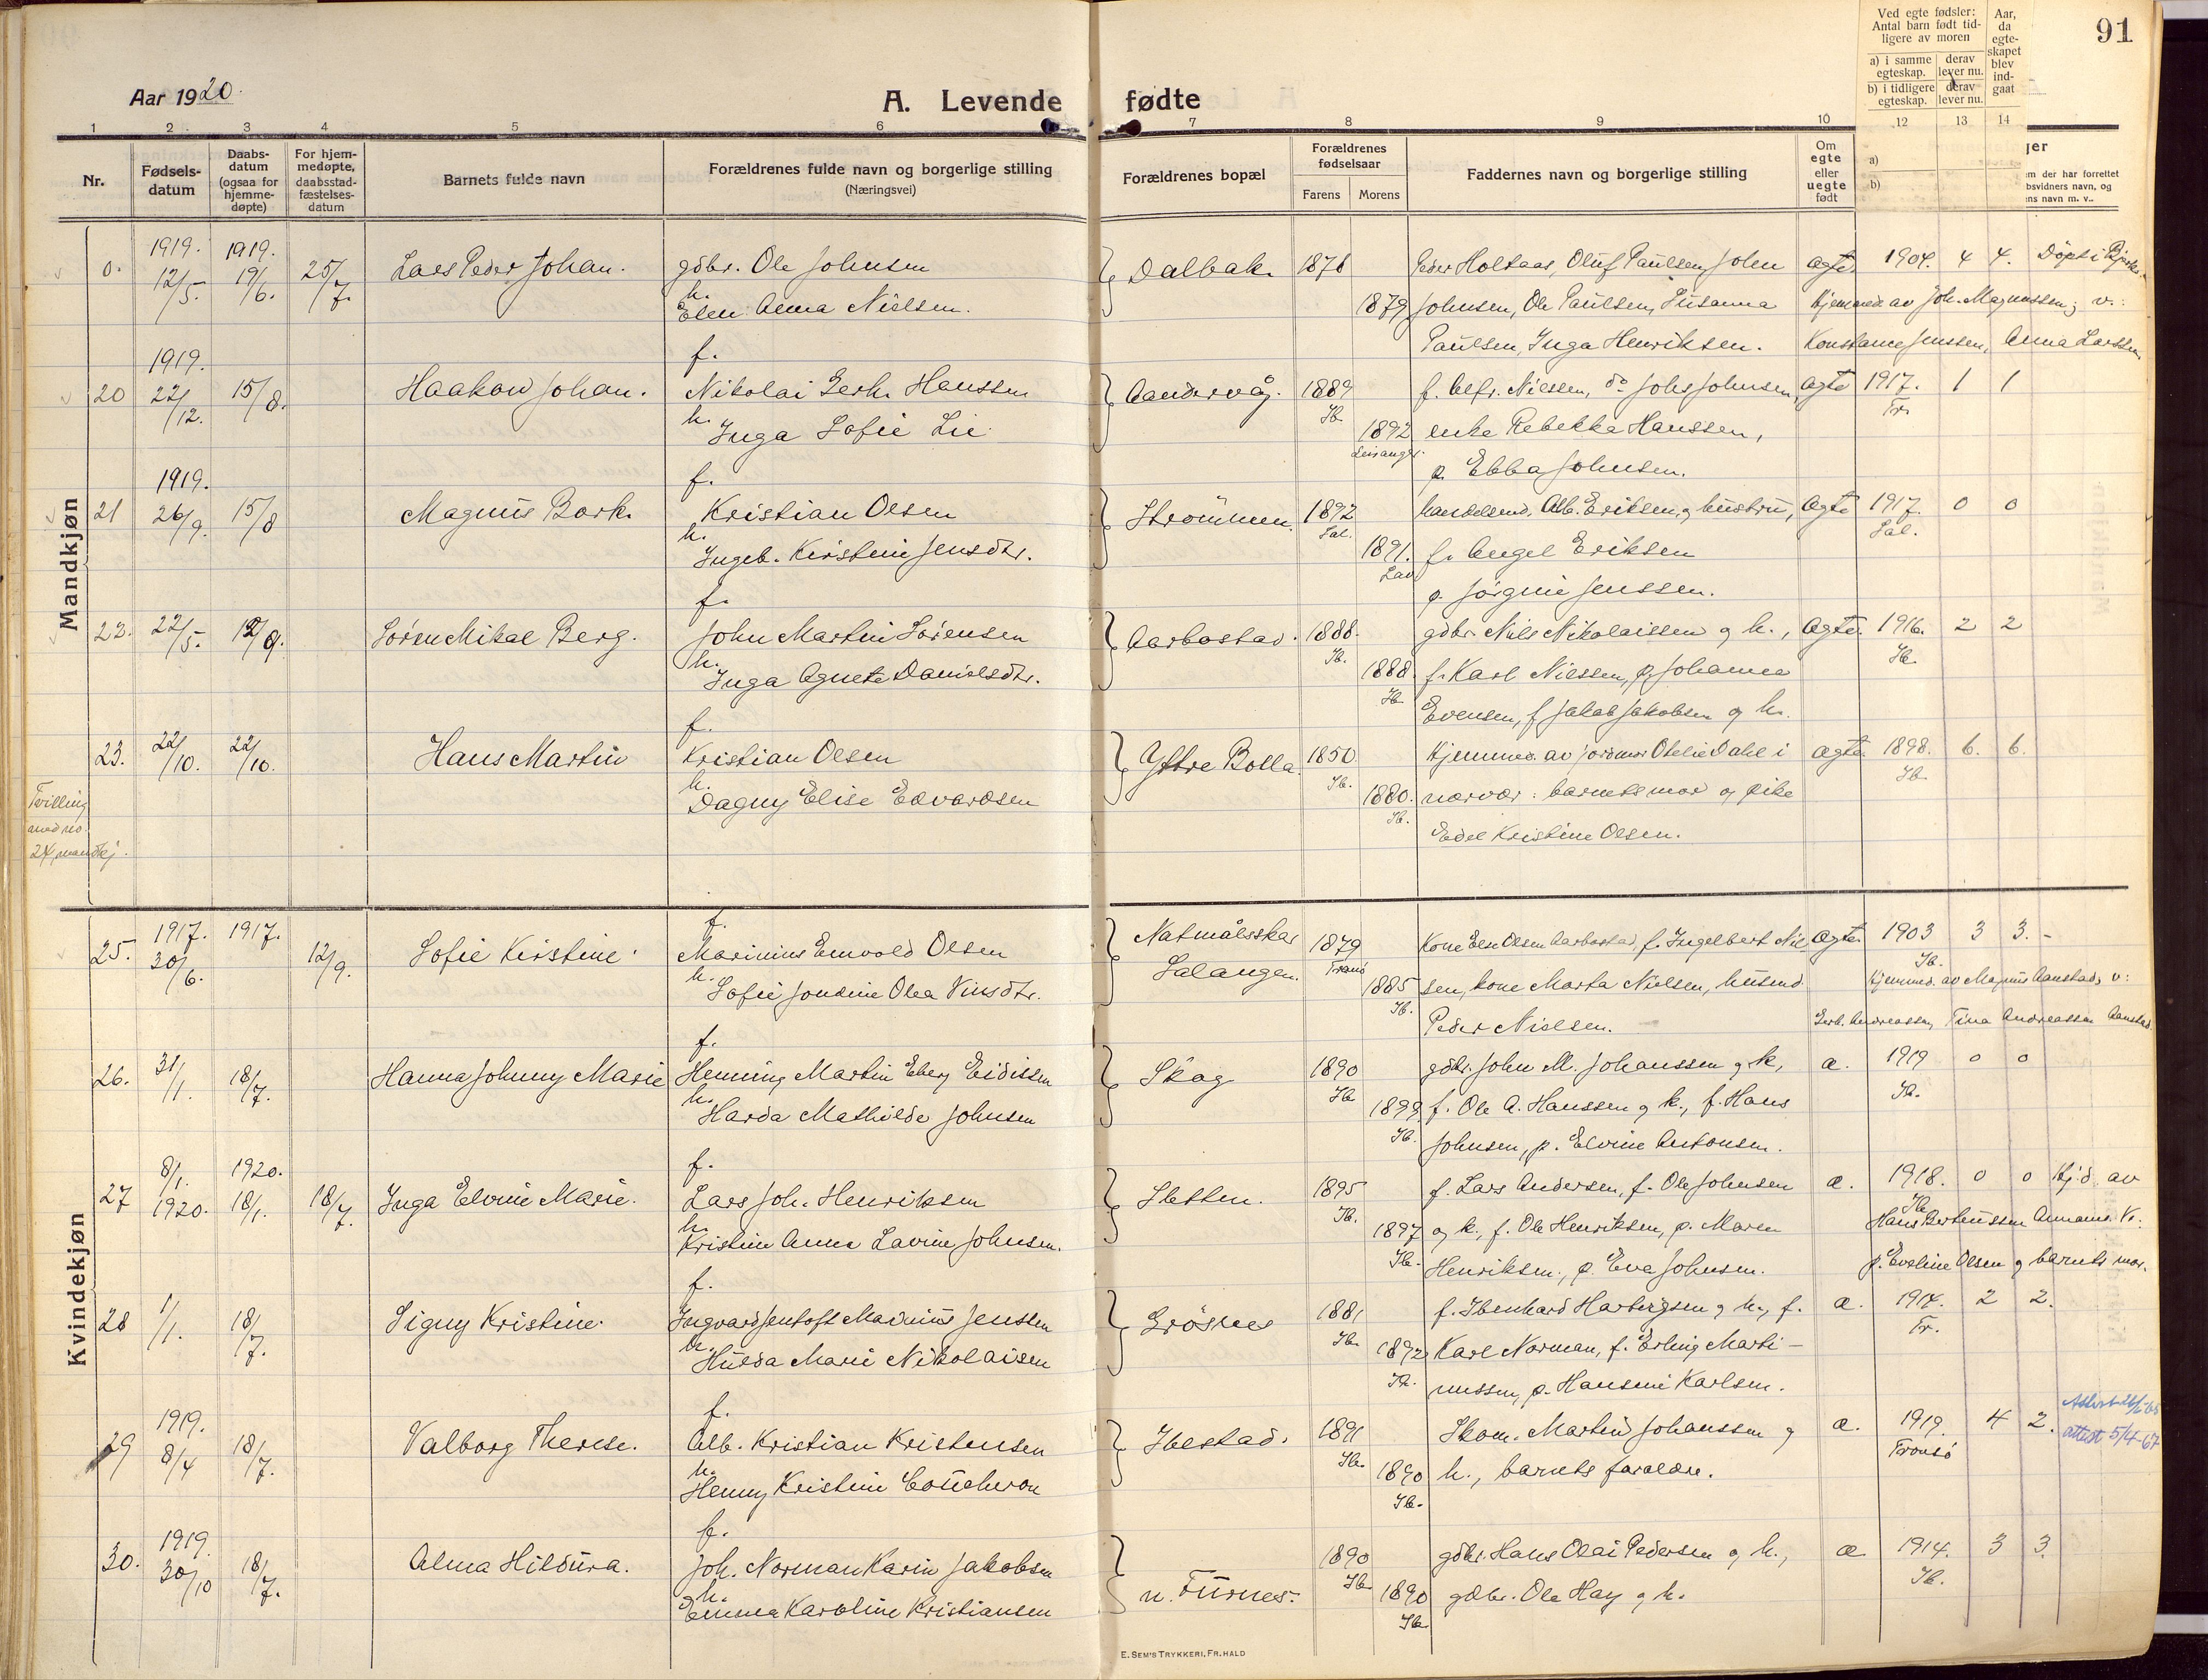 91
Aar 1920.
A. Levende fødte
Ved egte fødsler: Antal barn født tidligere av moren
a) i samme egteskap. derav lever nu.
b) i tidligere egteskap. derav lever nu.
Aar, da egteskapet blev indgaat
1 2 3 4 5 6 7 8 9 10 12 13 14
Nr.
Fødselsdatum
Daabsdatum (ogsaa for hjemmedøpte)
For hjemmedøpte, daabsstadfæstelsesdatum
Barnets fulde navn
Forældrenes fulde navn og borgerlige stilling
(Næringsvei)
Forældrenes bopæl
Forældrenes fødselsaar
Farens Morens
Faddernes navn og borgerlige stilling
Om egte eller uegte født
a)
b)
em der har forrettet
bsvidners navn, og
ens navn m. v..
Mandkjøn
1919. 1919.
0. 12/5. 19/6. 25/7. Lars Peder Johan. gdbr. Ole Johnsen Dalbak. 1878 Peder Holtaas, Oluf Paulsen, John Ægte. 1904. 4 4.
h. Elen Anna Nielsen. 1879 Johnsen, Ole Paulsen, Susanna Hjemmed. av Joh. Magnussen; v.:
Paulsen, Inga Henriksen. Konstance Jenssen, Anna Larssen,
1919. f.
20 22/12. 15/8. Haakon Johan. Nikolai Gerh. Hanssen Aandervåg. 1889 f. Alfr. Nielsen, do Johs Johnsen, Ægte 1917. 1 1
Ib. Tr.
h. Inga Sofie Lie 1892 enke Rebekka Hanssen,
p. Ebba Johnsen.
1919. f.
21 26/9. 15/8 Magnus Bork. Kristian Olsen Strömmen. 1892 handelsmd. Alb. Eriksen, g hustru, Ægte 1917. 0 0
Sal. Sal.
h. Ingeb. Kirstine Jensdtr. 1891. f. Angel Eriksen
Lav p. Jørgine Jenssen.
f.
22. 22/5. 12/9. Søren Mikal Berg. John Martin Sörensen Aarbostad. 1888. gdbr. Nils Nikolaissen g h., Ægte. 1916. 2 2
Ib. Ib.
h. Inga Agnete Danielsdtr. 1888. f. Karl Nilssen, p. Johanna
Ib. Evensen, f Jakob Jakobsen g h.
f.
23. 22/10. 22/10. Hans Martin Kristian Olsen Ytre Rolla. 1850 Hjemmed. av jordmor Otelie Dahl i Ægte. 1898. 6. 6.
Ib. Ib.
h. Dagny Elise Edvardsen 1880. nærvær: barnets mor og pike
Ib. Edel Kristine Olsen.
Tvilling
med no.
24, mandkj.
Kvindekjøn
1917. 1917. f.
25. 30/6. 12/9. Sofie Kirstine. Marinius Emvold Olsen Natmålsskar 1879 Kone Else Olsen Aarbostad, f. Ingelbert Niel- Ægte. 1903 3 3.
Tranö Ib.
h. Sofie Jondine Olea Vinsdtr. Salangen. 1885 sen, kone Marta Nielsen, husmd Hjemmed. av Magnus Aanstad, v:
Ib. Peder Nielsen. Gerh. Andreassen, Tina Andreassen Aanstad.
f.
26. 31/1. 18/7. Hanna Johnny Marie Henning Martin Eberg Eidissen Skog 1890 gdbr. John M. Johanssen g k, æ. 1919 0 0
Ib. Ib.
h. Harda Mathilde Johnsen 1899 f. Ole A. Hanssen g k., f. Hans
Ib. Johnsen, p. Elvine Antonsen.
8/1. 1920. f.
27 1920. 18/1. 18/7. Inga Elvine Marie. Lars Joh. Henriksen Sletten. 1895 f. Lars Andersen, f. Ole Johnsen æ. 1918. 0 0 Hj.d. av
Ib. Ib.
h. Kristine Anna Lavine Johnsen. 1897 g k., f. Ole Henriksen, p. Maren Hans Berteussen
Ib. Henriksen, p. Eva Johnsen. p. Eveline Olsen g barnets mor.
f.
28 1/1. 18/7. Signy Kristine. Ingvard Jentoft Marinius Jenssen Grösnes 1881 f. Ibenhard Hartvigsen g h., f. æ. 1914. 2 2.
Ib. Tr.
h. Hulda Marie Nikolaisen 1892 Karl Norman, f. Erling Marti-
Ib. nussen, p. Hansine Karlsen.
1919. f.
29 8/4 18/7. Valborg Therese. Alb. Kristian Kristensen Ibestad. 1891 Skom. Martin Johanssen g æ. 1919. 4 2. attest 5/4-67
Ib. Tromsö
h. Henny Kristine Coucheron 1890 h., barnets foreldre.
Ib.
1919 f.
30. 30/10 18/7. Alma Hildura. Joh. Norman Karin Jakobsen n. Furnes. 1890 gdbr. Hans Olai Pedersen g h., æ 1914. 3 3
Ib. Ib.
h. Emma Karoline Kristiansen 1890 gdbr. Ole Hay g h.
Ib
E. SEM'S TRYKKERI, FR. HALD